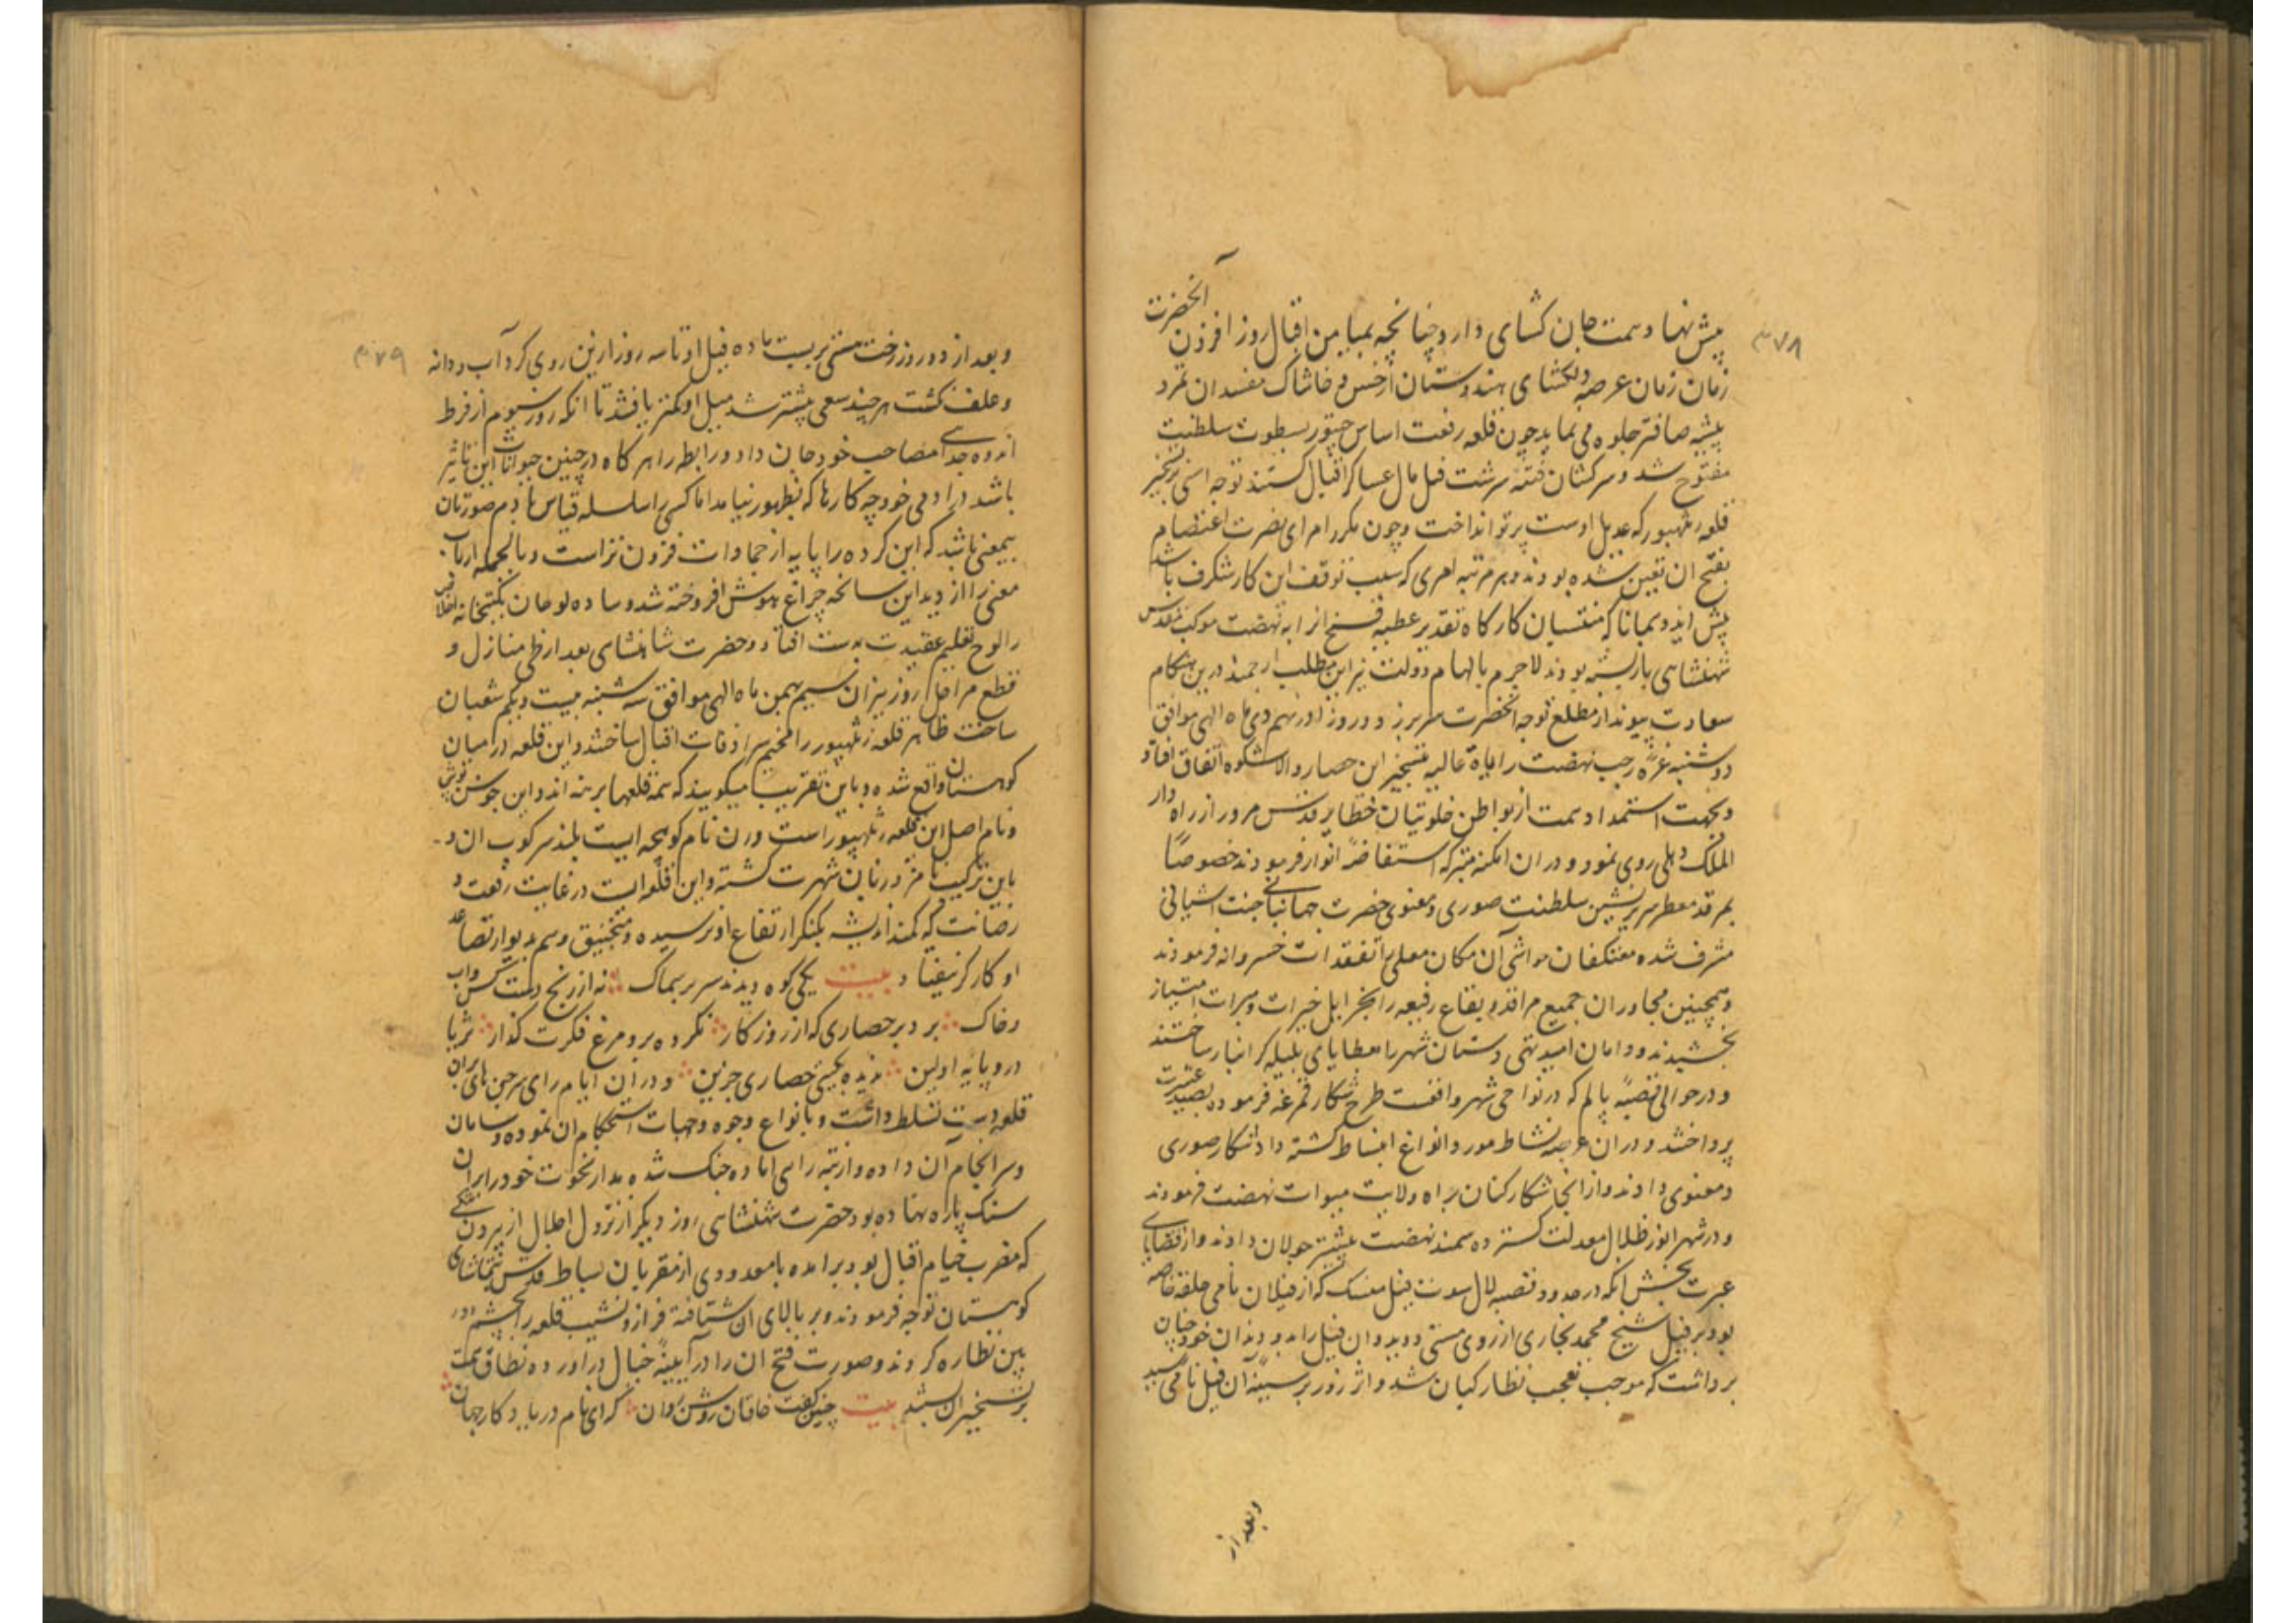 ۳۷۸
آنحضرت
پیش نهاد همت جهان کشای دارد چنانچه بمیامن اقبال روز افزون
زمان زمان عرصه دلکشای هندوستان از خس و خاشاک مفسدان تمرد
پیشه صافتر جلوه می نماید چون قلعه رفعت اساس چیتور بسطوت سلطنت
مفتوح شد و سرکشان فتنه سرشت فیل مال عساکر اقبال کشتند توجه اشرف بتسخیر
قلعه رنتهبور که عدیل اوست پرتو انداخت و چون مکرر امرای نصرت اعتصام
بفتح ان تعین شده بودند و هر مرتبه امری که سبب توقف این کار شکرف باشد
پیش امد و همانا که منتسبان کارکاه تقدیر عطیه فتح انرا به نهضت موکب مقدس
شهنشاهی باز بسته بودند لاجرم بالهام دولت نیز این مطلب ارجمند درین هنکام
سعادت پیوند از مطلع توجه آنحضرت سر بر زد و روز اذر نهم دی ماه الهی موافق
دوشنبه غره رجب نهضت رایات عالیه بتسخیر این حصار والاشکوه اتفاق افتاد
و بجهت استمداد همت از بواطن خلوتیان خطایر قدس مرور از راه دار
الملک دهلی روی نمود و دران امکنه متبرکه استفاضهٔ انوار فرمودند خصوصاً
بمرقد معطر سریر نشین سلطنت صوری و معنوی حضرت جهانبانی جنت اشیانی
مشرف شده معتکفان حواشی آن مکان معلی را تفقدات خسروانه فرمودند
و همچنین مجاوران جمیع مراقد و بقاع رفیعه را بجزایل خیرات و مبرات امتیاز
بخشیدند و دامان امید تهی دستان شهر را بعطایای جلیله کرانبار ساختند
و در حوالی قصبهٔ پالم که در نواحی شهر واقعست طرح شکار قمرغه فرموده بصید عشرت
پرداختند و دران عرصه نشاط مورد انواع انبساط کشته داد شکار صوری
و معنوی دادند و از انجا شکارکنان براه ولایت میوات نهضت فرمودند
و در شهر الور ظلال معدلت کسترده سمند نهضت پیشتر جولان دادند و از قضایای
عبرت بخش انکه در حدود قصبه لال سوت فیل که از فیلان نامی حلقه خاصه
بود بر فیل شیخ محمد بخاری از روی مستی دوید و ان فیل را بدو دندان خود چنان
برداشت که موجب تعجب نظارکیان شد و اثر زور بر سینهٔ آن فیل نامی رسید
و بعد از
۳۷۹
و بعد از دو روز رخت هستی بربست ماده فیل او تا سه روز ازین روی کرد آب و دانه
و علف نکشت هر چند سعی بیشتر شد میل او کمتر یافتند تا انکه روز سیوم از فرط
اندوه جدائی مصاحب خود جان داد و رابطه را هر کاه در چنین حیوانات این تاثیر
باشد در ادمی خود چه کارها که بظهور نیامد اما کسی را سلسله قیاس ها دم صورتان
بیمعنی نباشد که این کروه را پایه از جمادات فزون تر است و بالجمله ارباب
معنی را از دید این سانحه چراغ هوش افروخته شد و ساده لوحان مکتبخانه اخلاص
را لوح تعلیم عقیدت بدست افتاد و حضرت شاهنشاهی بعد از طی منازل و
قطع مراحل روز نیران سیم بهمن ماه الهی موافق سه شنبه بیست و یکم شعبان
ساحت ظاهر قلعه رنتهبور را مخیم سرادقات اقبال ساختند و این قلعه در میان
کوهستان واقع شده و باین تقریب میکویند که همه قلعها برهنه اند و این جوشن پوش
و نام اصل این قلعه رنتهبور است و رن نام کوهچه ایست بلند سرکوب ان و
باین ترکیب نامزد زبان شهرت کشته و این قلعه ایست در غایت رفعت و
رصانت که کمند اندیشه بکنکر ارتفاع او نرسیده و منجنیق وهم بدیوار تصاعد
او کارکر نیفتاد بیت یکی کوه دیدند سر بر سماک نه از رنج دست کس و آب
و خاک برو بر حصاری که از روزکار نکرده برو مرغ فکرت کذار ثریا
درو پایه اولین ندیده کسی حصاری چنین و دران ایام رای سرجن هاری بران
قلعه دست تسلط داشت و بانواع وجوه و جهات استحکام ان نموده و سامان
و سرانجام آن داده و ازتبه رای اماده جنک شده مدار نخوت خود را بران
سنک پاره نهاده بود حضرت شهنشاهی روز دیکر از نزول اجلال از بیرون تنکی
که مضرب خیام اقبال بود برامده با معدودی از مقربان بساط قدس بتماشای
کوهستان توجه فرمودند و بر بالای ان شتافته فراز و نشیب قلعه را بچشم دور
بین نظاره کردند و صورت فتح ان را در آیینهٔ خیال دراورده نطاق همت
بر تسخیر ان بستند بیت چنین کفت خاقان روشن روان که ای نام دریاد کار جهان